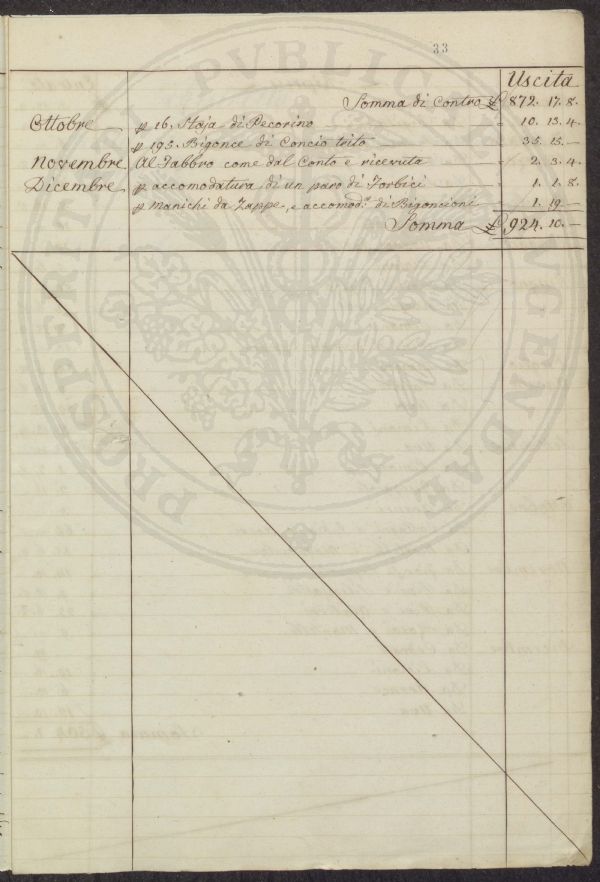 33
Uscita
Somma di Contro £ 872. 17. 8.
Ottobre p 16. Staja di Pecorino 10. 13. 4.
p 195. Bigonce di Concio trito 35. 15. —
Novembre Al Fabbro come dal Conto e ricevuta 2. 3. 4.
Dicembre p accomodatura di un paro di Forbici 1. 1. 8.
p manichi da Zappe, e accomod.ª di Bigoncioni 1. 19. —
Somma £ 924. 10. —
PROSPERITATI PVBLICAE AVGENDAE